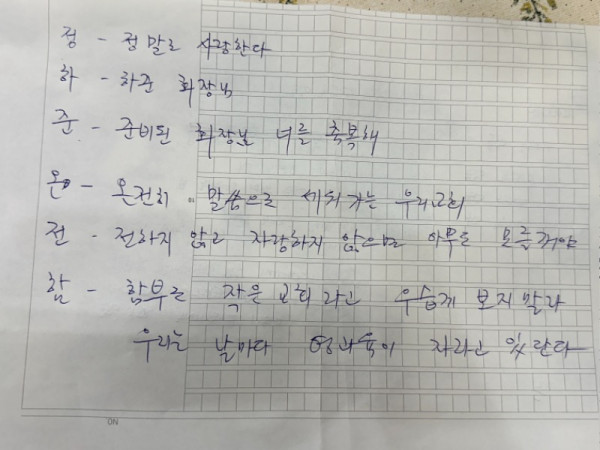 정 - 정말로 사랑한다
하 - 하준 회장님
준 - 준비된 회장님 너를 축복해
온 - 온전히 말씀으로 세워가는 우리교회
전 - 전하지 않고 자랑하지 않으면 아무도 모를거야
함 - 함부로 작은 교회라고 우습게 보지말라
우리는 날마다 영과육이 자라고 있단다
ON